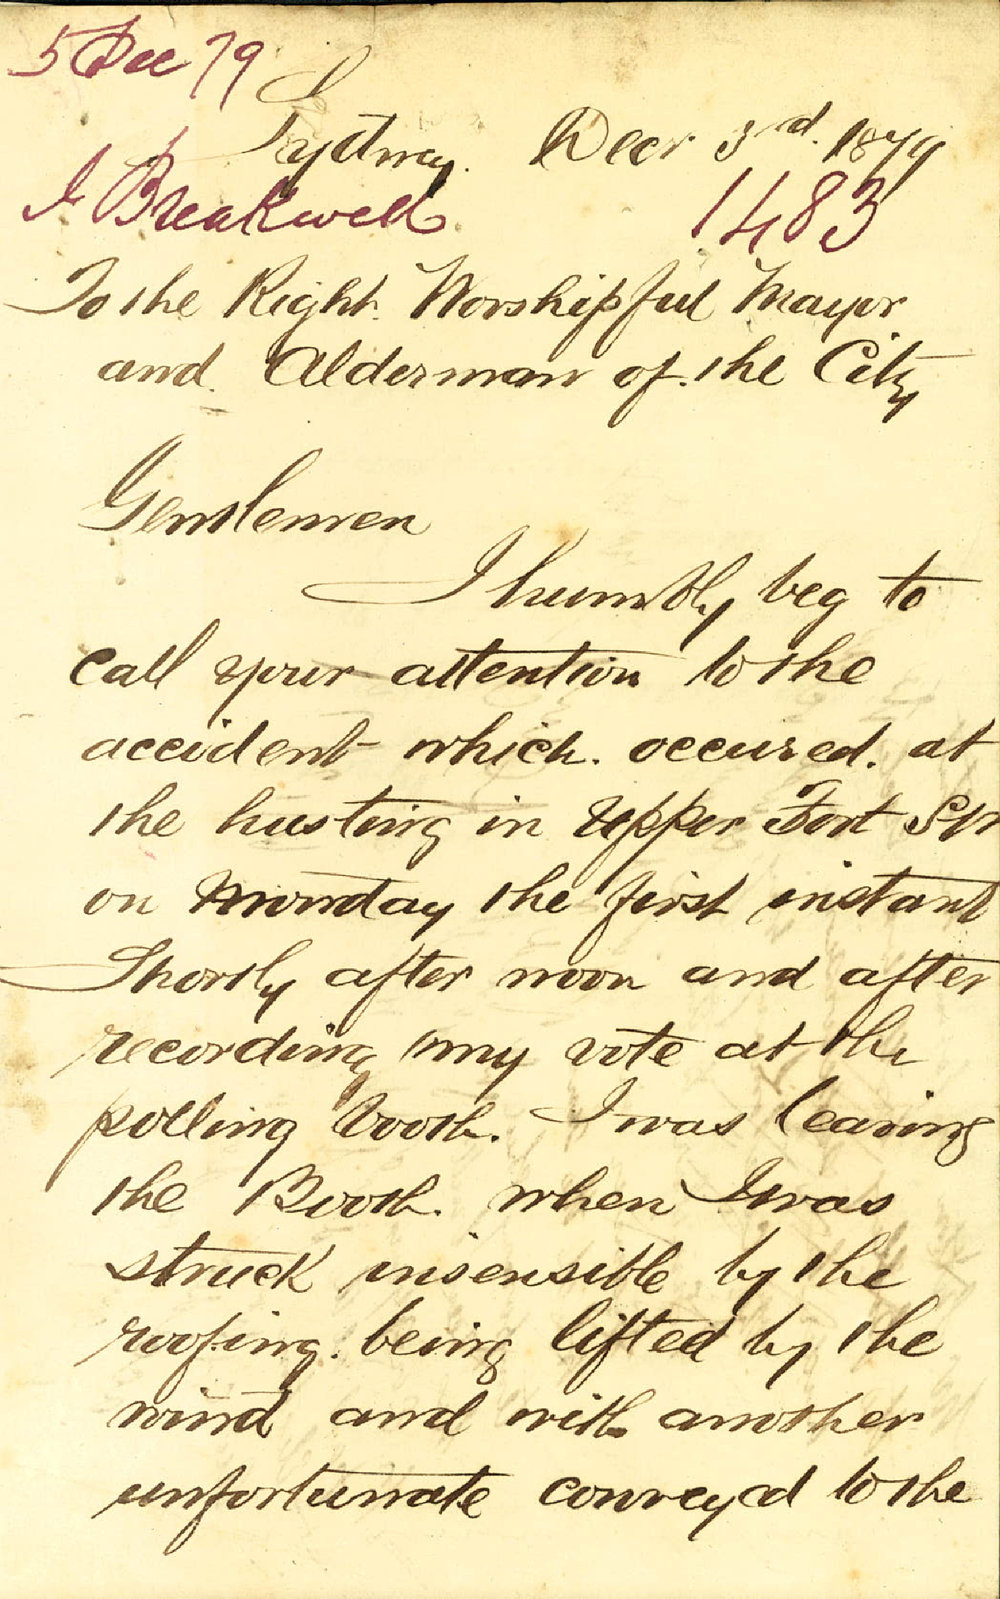 5 Dec 79
Sydney. Decr 3rd. 1879
J Breakwell 1483
To the Right. Worshipful Mayor
and Alderman of the City
Gentlemen
I humbly beg to
call your attention to the
accident which. occured. at
the husting in Upper Fort Str
on Monday the first instant
Shortly after noon and after
recording my vote at the
polling booth. I was leaving
the Booth. when I was
struck insensible by the
roofing. being lifted by the
wind and with another
unfortunate conveyed to the